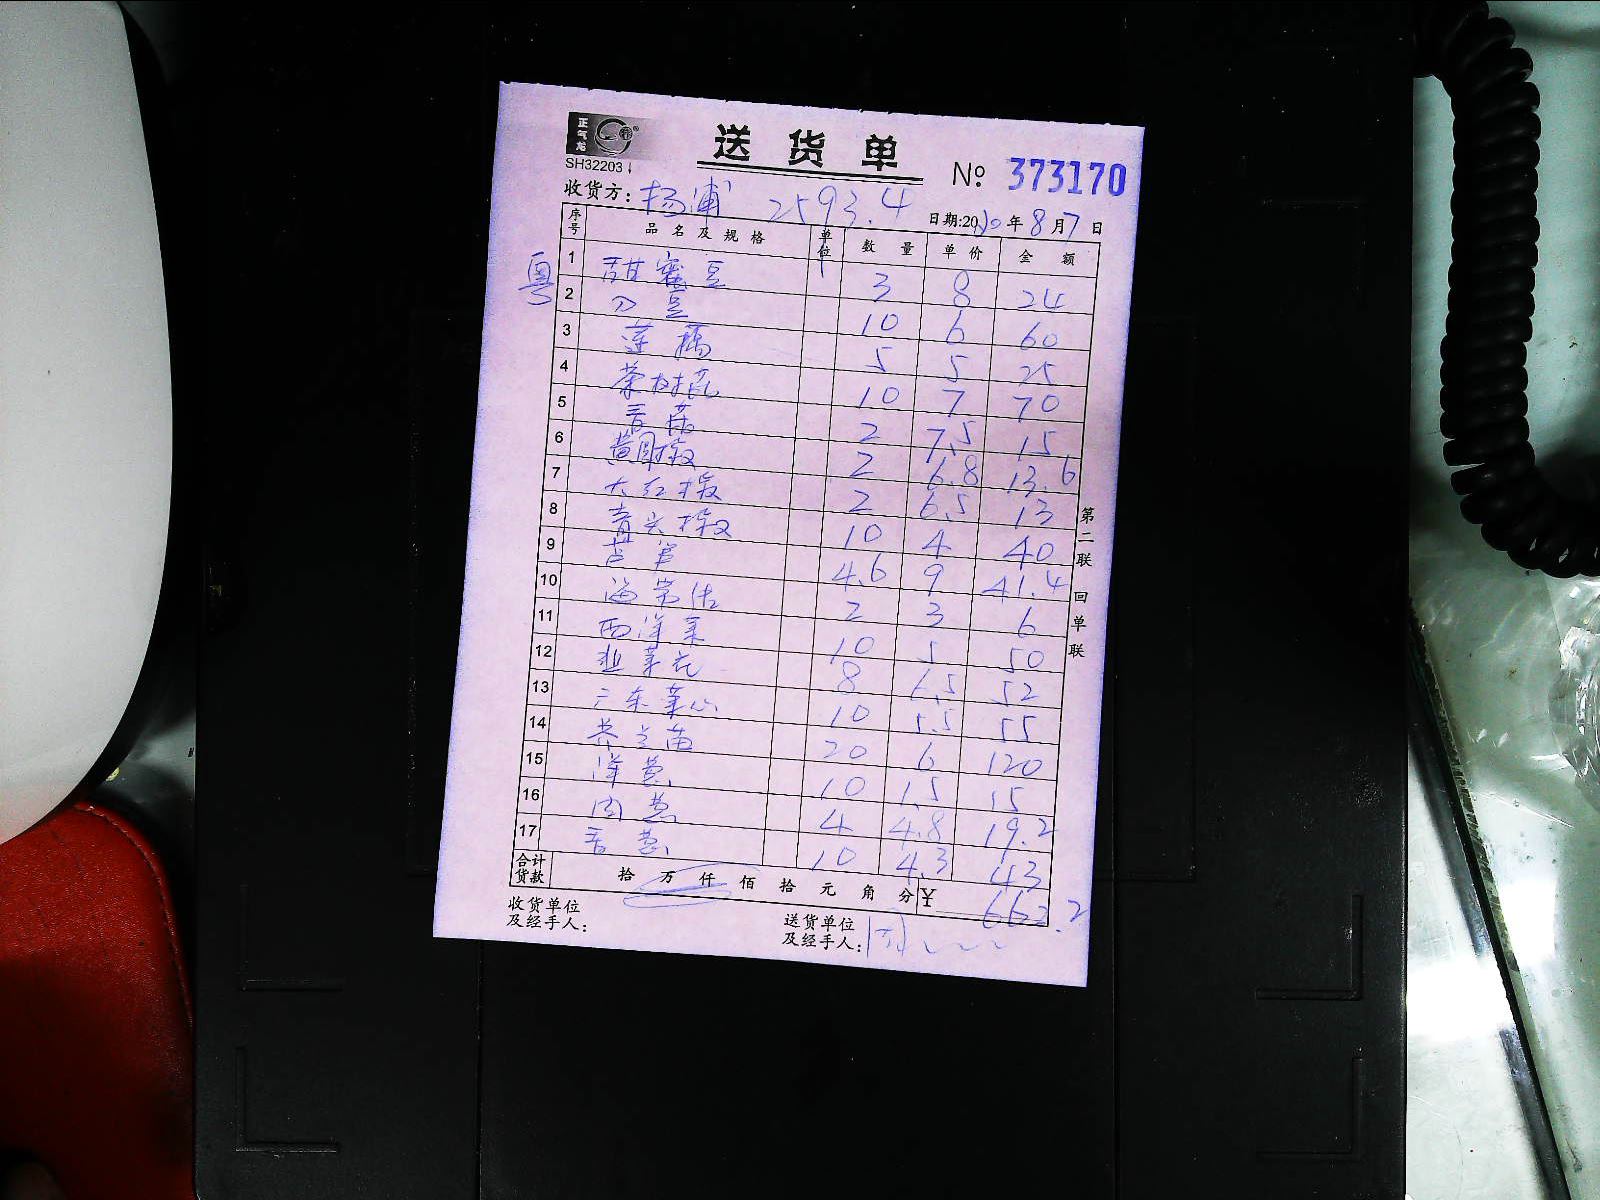 正气龙
SH32203
送货单
№ 373170
收货方: 杨浦 2593.4
日期:2020年8月7日
序号 品名及规格 单位 数量 单价 金额
粤
1 甜蜜豆 3 8 24
2 刀豆 10 6 60
3 莲藕 5 5 25
4 茶树菇 10 7 70
5 香菇 2 7.5 15
6 黄圆椒 2 6.8 13.6
7 大红椒 2 6.5 13
8 青尖椒 10 4 40
9 芦笋 4.6 9 41.4
10 海带结 2 3 6
11 西洋菜 10 5 50
12 韭菜花 8 6.5 52
13 广东菜心 10 5.5 55
14 芥兰苗 20 6 120
15 洋葱 10 1.5 15
16 肉葱 4 4.8 19.2
17 香葱 10 4.3 43
合计货款 拾万仟佰拾元角分 ¥ 662.2
收货单位及经手人:
送货单位及经手人:
第二联 回单联